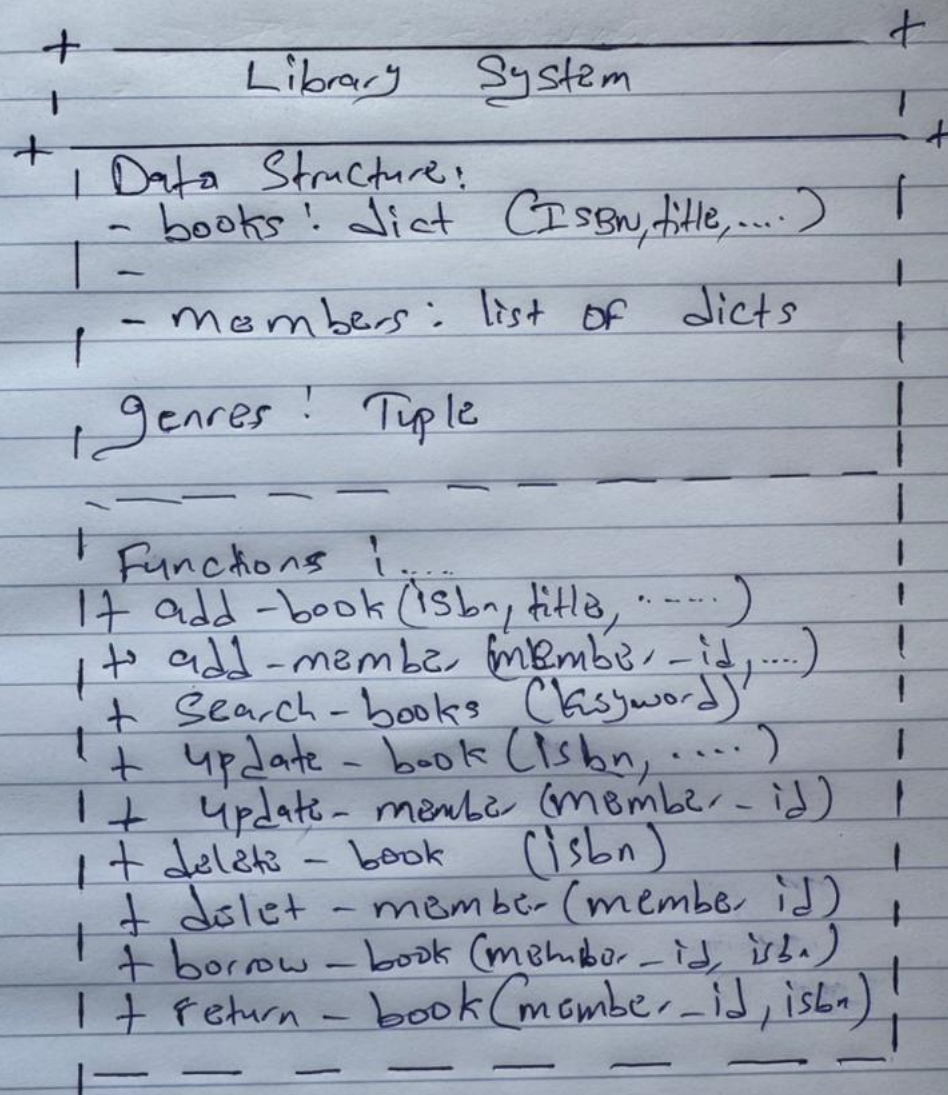 Library System
Data Structure:
- books: dict (ISBN, title, ....)
-
- members: list of dicts
genres: Tuple
Functions :....
+ add-book (isbn, title, ......)
+ add-member (member-id, ....)
+ Search-books (Keyword)
+ update-book (isbn, .....)
+ update-member (member-id)
+ delete-book (isbn)
+ delet-member (member id)
+ borrow-book (member-id, isbn)
+ return-book (member-id, isbn)